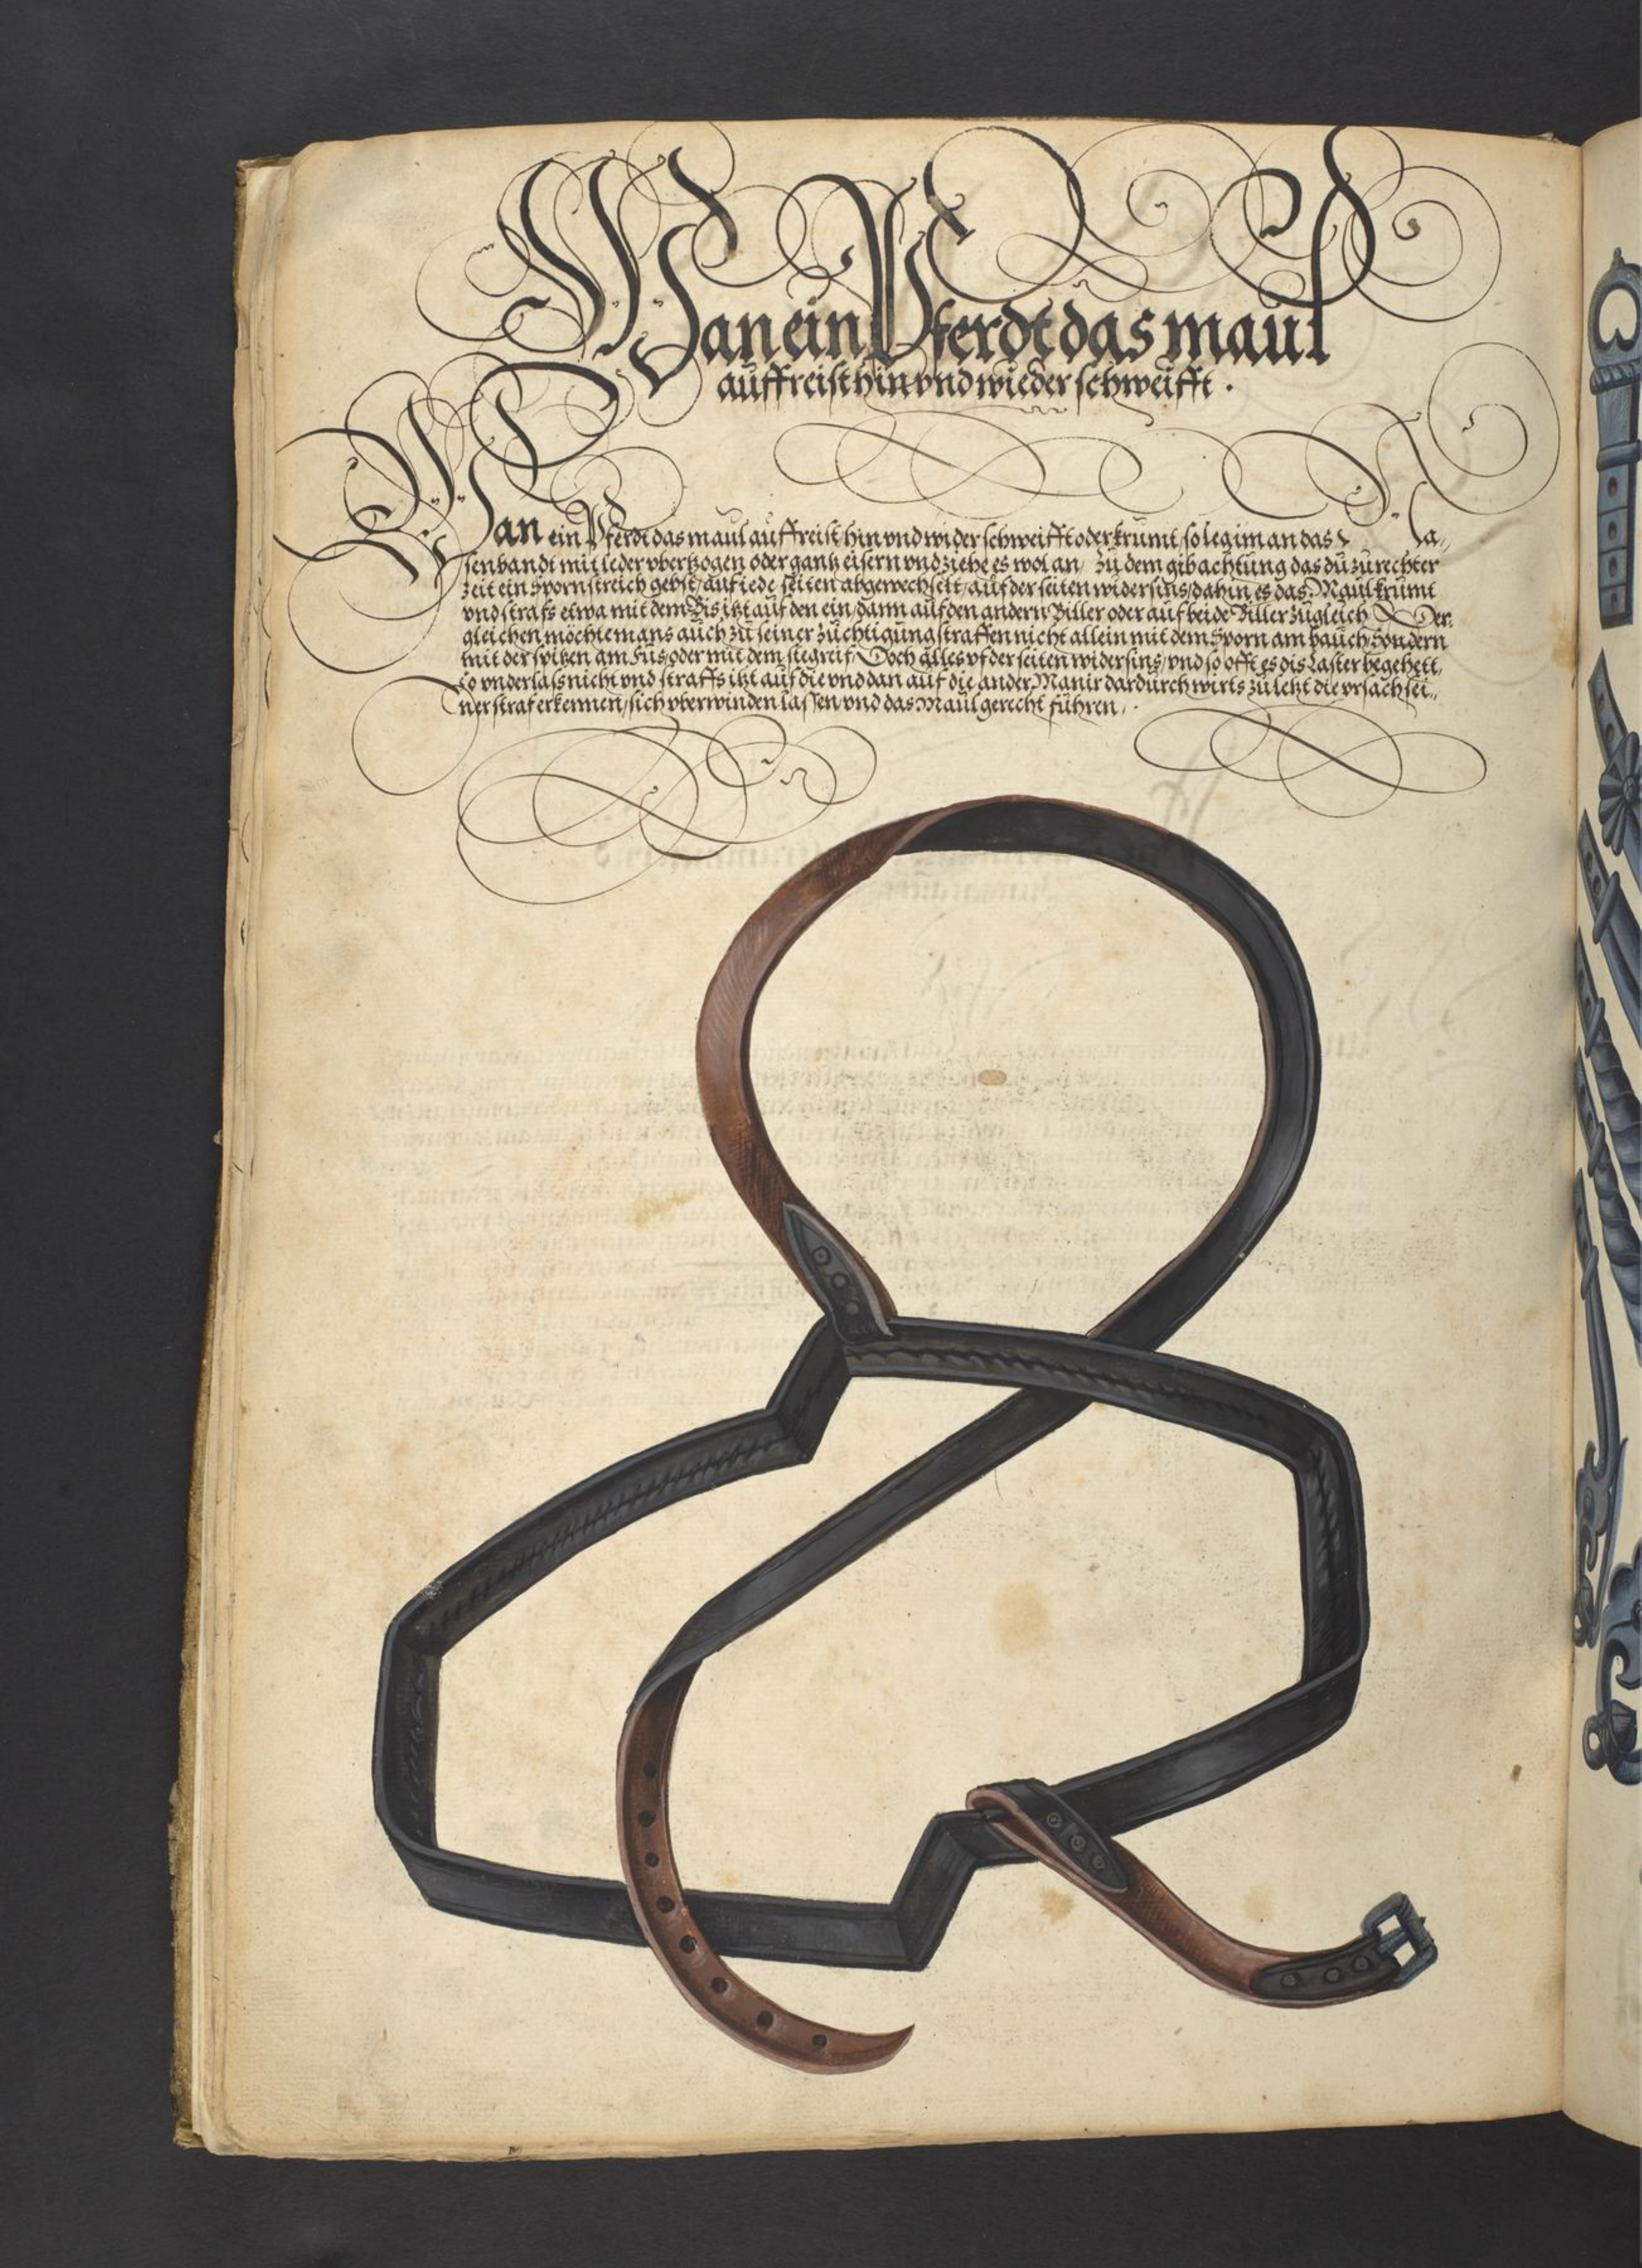 Wan ein Pferdt das maul
auffreist hin vnd wieder schweifft .
Wan ein Pferdt das maul auffreist hin vnd wider schweifft oder krumt / so leg im an das Na⸗
senbandt mit leder vberzogen oder gantz eisern vnd ziehe es wol an / zu dem gib achtung das du zu rechter
zeit ein Spornstreich gebst / auf iede seiten abgewechselt / auf der seiten widersins / dahin es das Maul krumt
vnd strafs etwa mit dem Bis itzt auf den ein / dann auf den andern Biller oder auf beide Biller zugleich Der⸗
gleichen möchte mans auch zu seiner züchtigung straffen nicht allein mit dem Sporn am bauch Sondern
mit der spitzen am Fus oder mit dem stegreif / Doch alles vf der seiten widersins / vnd so offt es dis Laster begehett,
so vnderlass nicht vnd straffs itzt auf die vnd dan auf die ander Manir dardurch wirts zu letzt die vrsach sei⸗
ner straf erkennen / sich vberwinden lassen vnd das Maul gerecht führen .